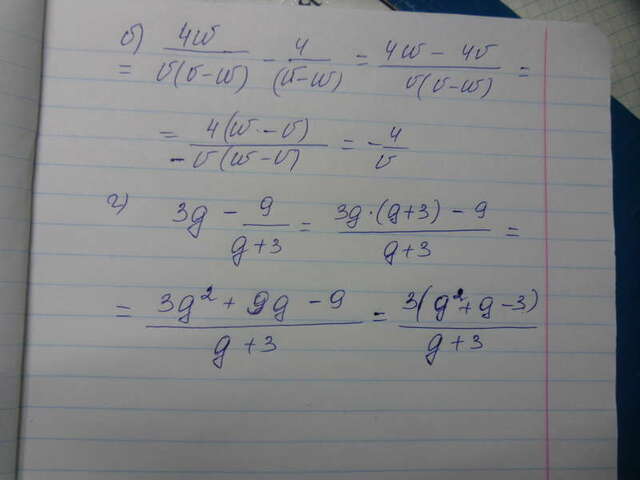 б) 4w/v(v-w) - 4/(v-w) = 4w - 4v/v(v-w) =
= 4(w-v)/-v(w-v) = -4/v
г) 3g - 9/g+3 = 3g·(g+3) - 9/g+3 =
= 3g² + 9g - 9/g+3 = 3(g²+g-3)/g+3